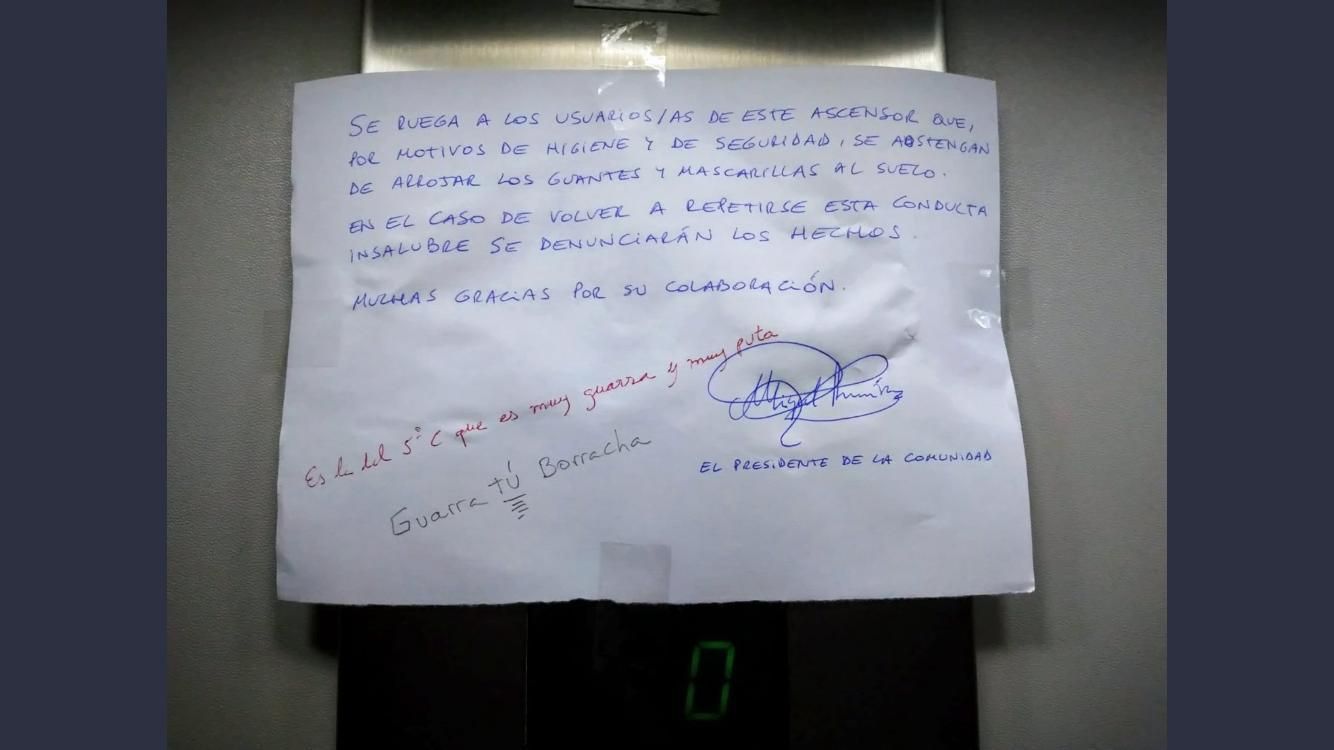 SE RUEGA A LOS USUARIOS/AS DE ESTE ASCENSOR QUE,
POR MOTIVOS DE HIGIENE Y DE SEGURIDAD, SE ABSTENGAN
DE ARROJAR LOS GUANTES Y MASCARILLAS AL SUELO.
EN EL CASO DE VOLVER A REPETIRSE ESTA CONDUCTA
INSALUBRE SE DENUNCIARÁN LOS HECHOS.
MUCHAS GRACIAS POR SU COLABORACIÓN.
Es la del 5º C que es muy guarra y muy puta
Guarra tú Borracha
Miguel
EL PRESIDENTE DE LA COMUNIDAD
0